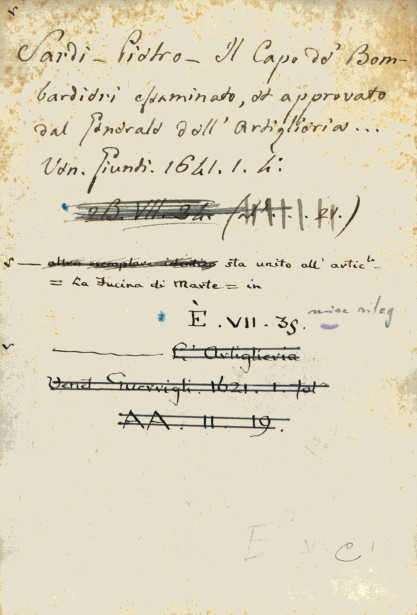 Sardi - Pietro - Il Capo de' Bom-
bardieri essaminato, et approvato
dal Generale dell'Artiglieria...
Ven. Giunti. 1641. 1. 4:
2B. VII. 34.
altro esemplare identico sta unito all'artic.lo
= La Fucina di Marte = in
È. VII. 35.
L'Artiglieria
Venet. Guerrigli. 1621. 1. fol
AA. II. 19.